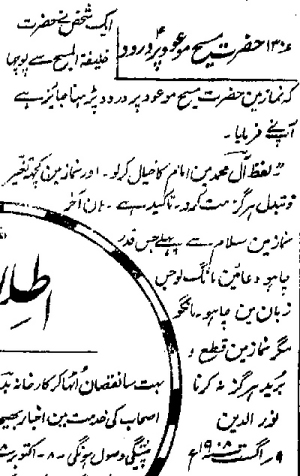 ۱۳۰۶ حضرت مسیح موعود پر درود
ایک شخص نے حضرت
خلیفۃ المسیح سے پوچھا
کہ نماز مین حضرت مسیح موعود پر درود پڑہنا جایز ہے
آپنے فرمایا۔
لفظ آل محمد مین امام کا خیال کر لو۔ اور نماز مین کچھ تغیر
و تبدل ہرگز مت کرو۔ تاکید ہے۔ ہان آخر
نماز مین سلام سے پہلے جس قدر
چاہو دعائین مانگ لو جس
زبان مین چاہو۔ مانگو
مگر نماز مین قطع و
برید ہرگز نہ کرنا
نور الدین
۹ اگست ۱۹۰۸ء
اطلا
بہت سا نقصان اُٹھا کر کارخانہ بد
اصحاب کی خدمت مین اخبار بھیج
پیشگی وصول ہوگی۔ ۸۔ اکتوبر